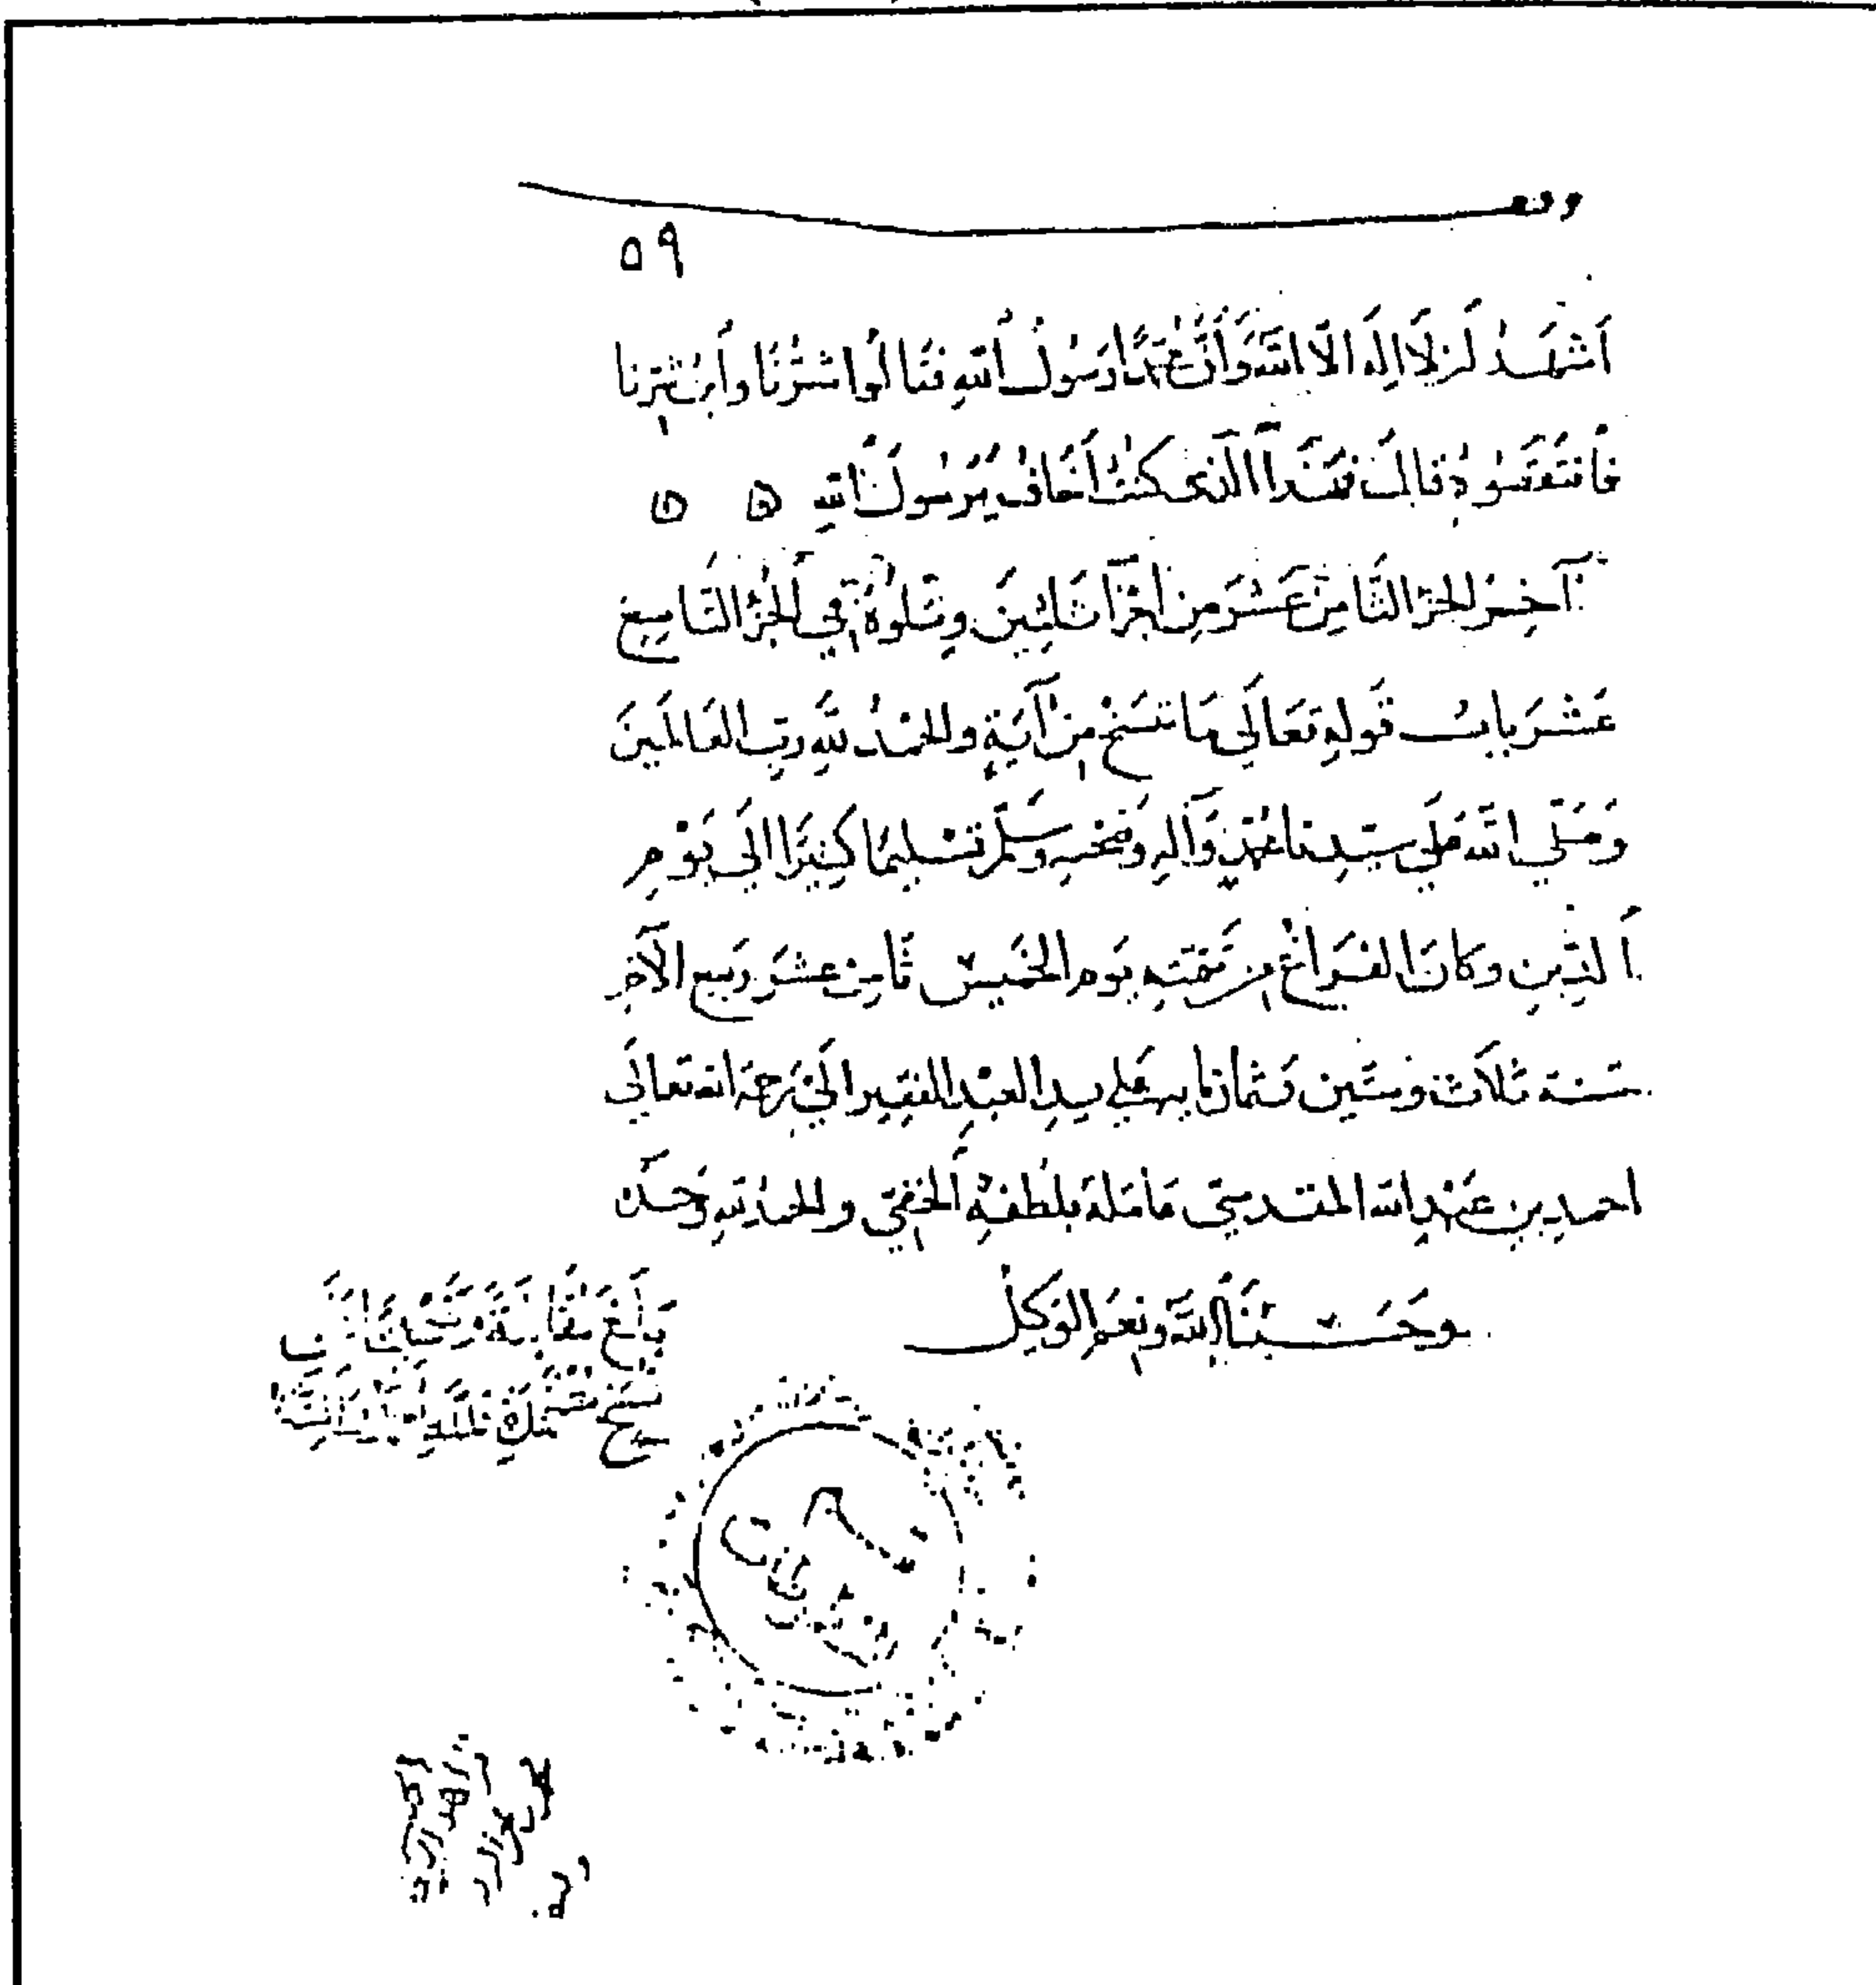 ٥٩
أَشْهَدُ أَن لَا إِلَهَ إِلَّا اللَّهُ وَأَنَّ مُحَمَّدًا رَسُولُ اللَّهِ فَقَالُوا شَرُّنَا وَابْنُ شَرِّنَا
فَانْتَقَصُوهُ قَالَ فَهَذَا الَّذِي كُنْتُ أَخَافُ يَرَسُولَ اللَّهِ ه ه
آخِرُ الجُزْءِ الثَّامِنَ عَشَرَ مِن أَجْزَاءِ ثَلَاثِينَ وَيَتْلُوهُ فِي الجُزْءِ التَّاسِعِ
عَشَرَ بَابُ قَولِهِ تَعَالَى مَا نَنْسَخْ مِنْ آيَةٍ وَالحَمْدُ لِلَّهِ رَبِّ العَالَمِينَ
وَصَلَّى اللَّهُ عَلَى سَيِّدِنَا مُحَمَّدٍ وَآلِهِ وَصَحْبِهِ وَسَلَّمَ تَسْلِيمًا كَثِيرًا إِلَى يَوْمِ
الدِّينِ وَكَانَ الفَرَاغُ مِنْ يَوْمَ الخَمِيسِ ثَامِنَ عَشَرَ رَبِيعِ الآخِرِ
سَنَةَ ثَلَاثٍ وَسِتِّينَ وَثَمَانمِايهٍ عَلَى يَدِ العَبْدِ الفَقِيرِ إِلَى رَحْمَةِ اللَّهِ تَعَالَى
احمد بن عَبْدِ اللَّهِ المَقْدِسِيِّ عَامَلَهُ بِلُطْفِهِ الخَفِيِّ وَالحَمْدُ لِلَّهِ وَحْدَهُ
وَحَسْبُنَا اللَّهُ وَنِعْمَ الوَكِيلُ
بَلَغَ مُقَابَلَةً